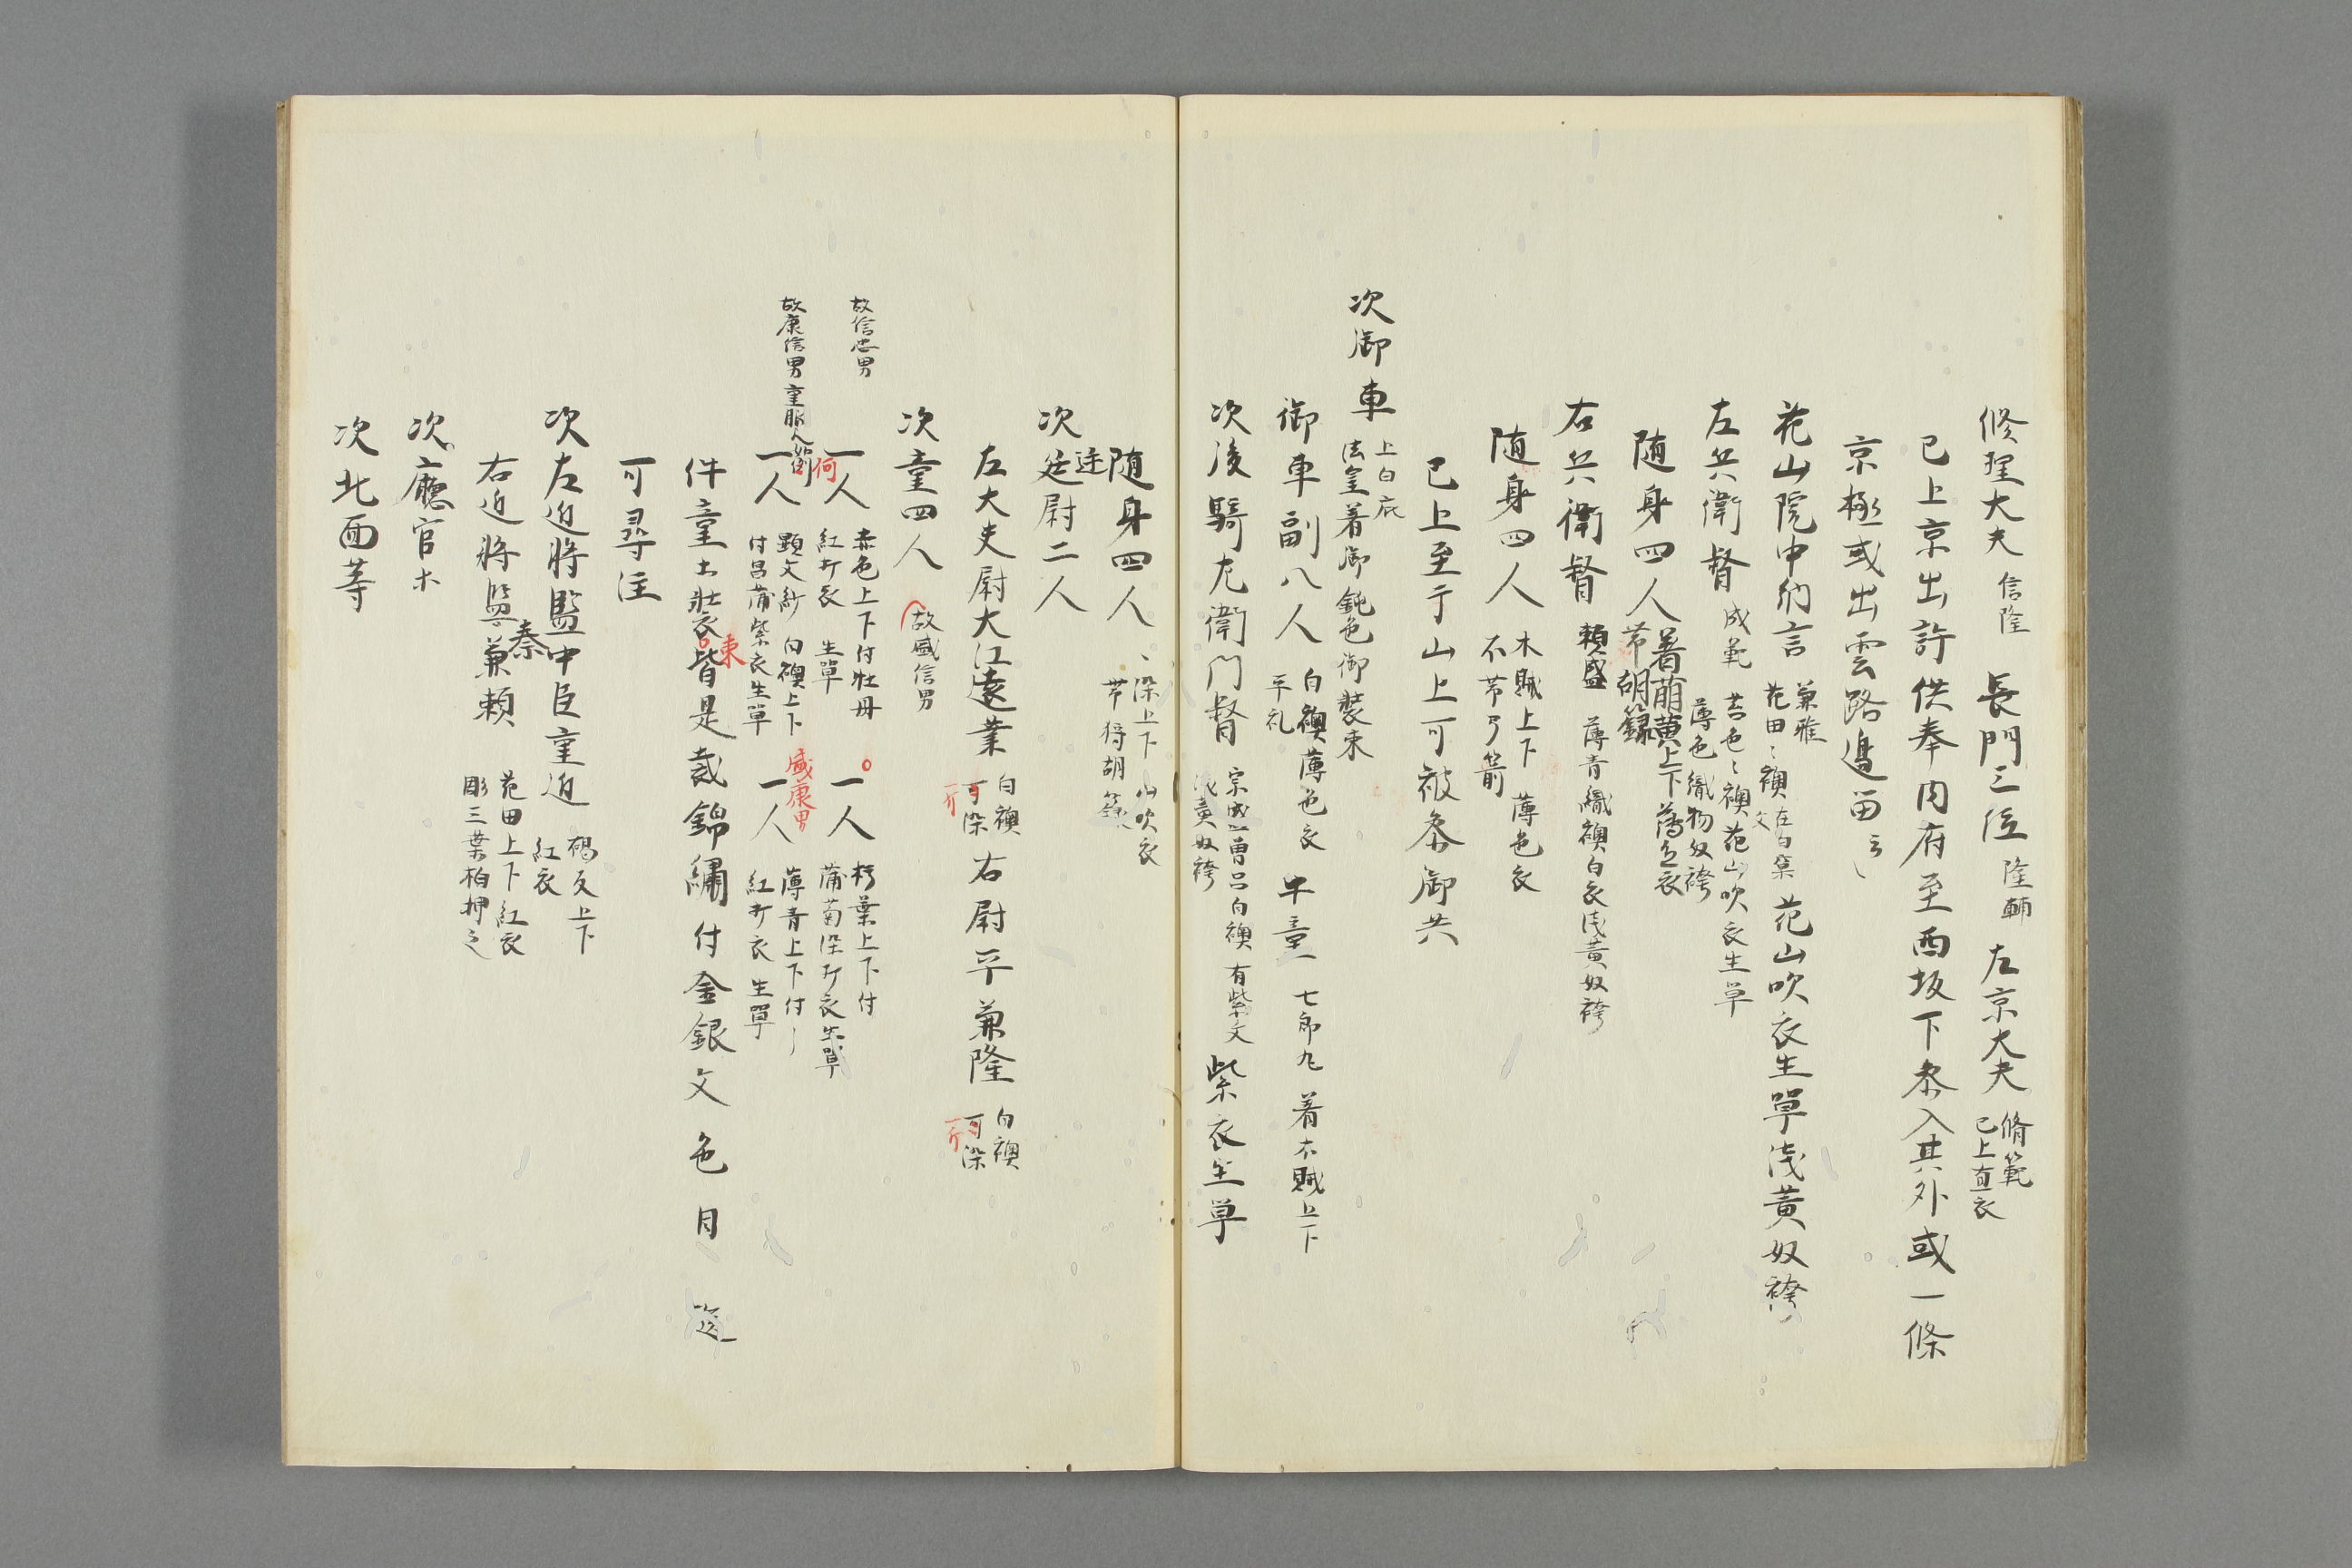 修理大夫 信隆 長門三位 隆輔 左京大夫 脩範 已上直衣
已上京出許供奉内府至西坂下参入其外或一條
京極或出雲路邊留云々
花山院中納言 兼雅 花田々襖 在白窠文 花山吹衣生單浅黄奴袴
左兵衛督 成範 青色々襖花山吹衣生単 薄色織物奴袴
随身四人 著萠黄上下薄色衣 帯胡籙
右兵衛督 頼盛 薄青織襖白衣浅黄奴袴
随身四人 木賊上下 薄色衣 不帯弓箭
已上至于山上可被参御共
次御車 上白庇 法皇着御鈍色御装束
御車副八人 白襖薄色衣 平礼 牛童一 七郎丸 着木賊上下
次後騎左衛門督 宗盛 白襖 有紫文 浅黄奴袴 紫衣生単
随身四人 染上下 山吹衣 帯狩胡籙
次廷尉二人
左大夫尉大江遠業 白襖 可染 右尉平兼隆 白襖 可染
次童四人 故盛信男
故信忠男 一人 赤色上下付牡丹 紅打衣 生單 一人 朽葉上下付 蒲萄染打衣生單
故康信男 童服人 一人 顕文紗 白襖上下 付昌蒲紫衣生單 盛康男 一人 薄青上下付 紅打衣 生單
件童士装束皆是裁錦繍付金銀文色目 追
可尋注
次左近将監中臣重近 褐衣上下 紅衣
右近将監秦兼頼 花田上下紅衣 彫三葉柏押之
次廳官ホ
次北面等